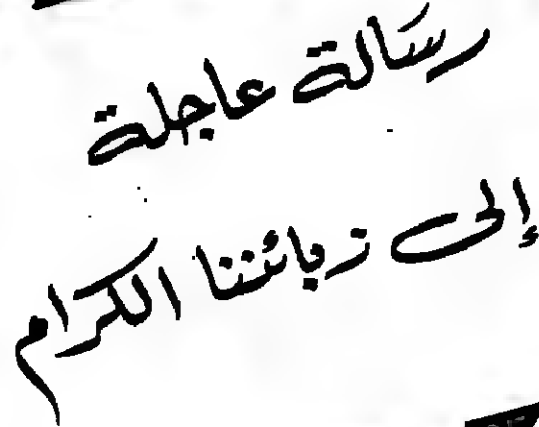 رسالة عاجلة
إلى زبائننا الكرام